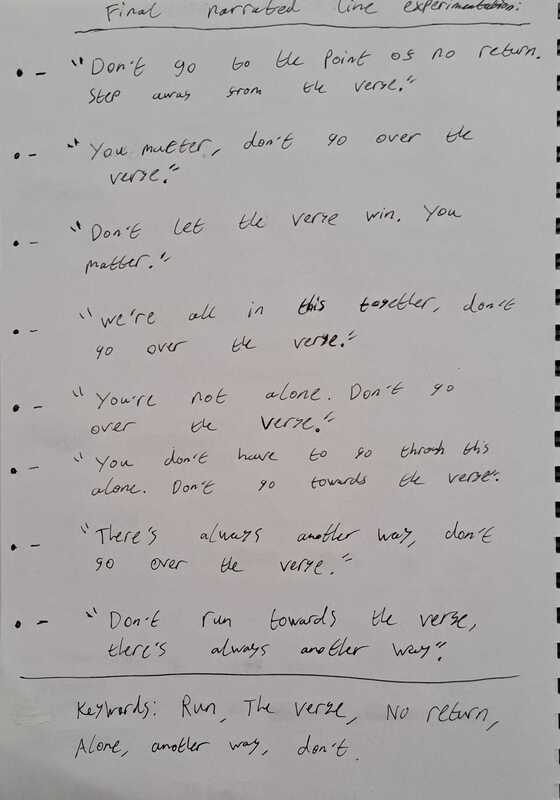 Final narrated line experimentation:
• - "Don't go to the point of no return.
Step away from the verge."
• - "You matter, don't go over the
verge."
• - "Don't let the verge win. You
matter."
• - "We're all in this together, don't
go over the verge."
• - "You're not alone. Don't go
over the verge."
• - "You don't have to go through this
alone. Don't go towards the verge".
• - "There's always another way, don't
go over the verge."
• - "Don't run towards the verge,
there's always another way".
Keywords: Run, The verge, No return,
Alone, another way, don't.